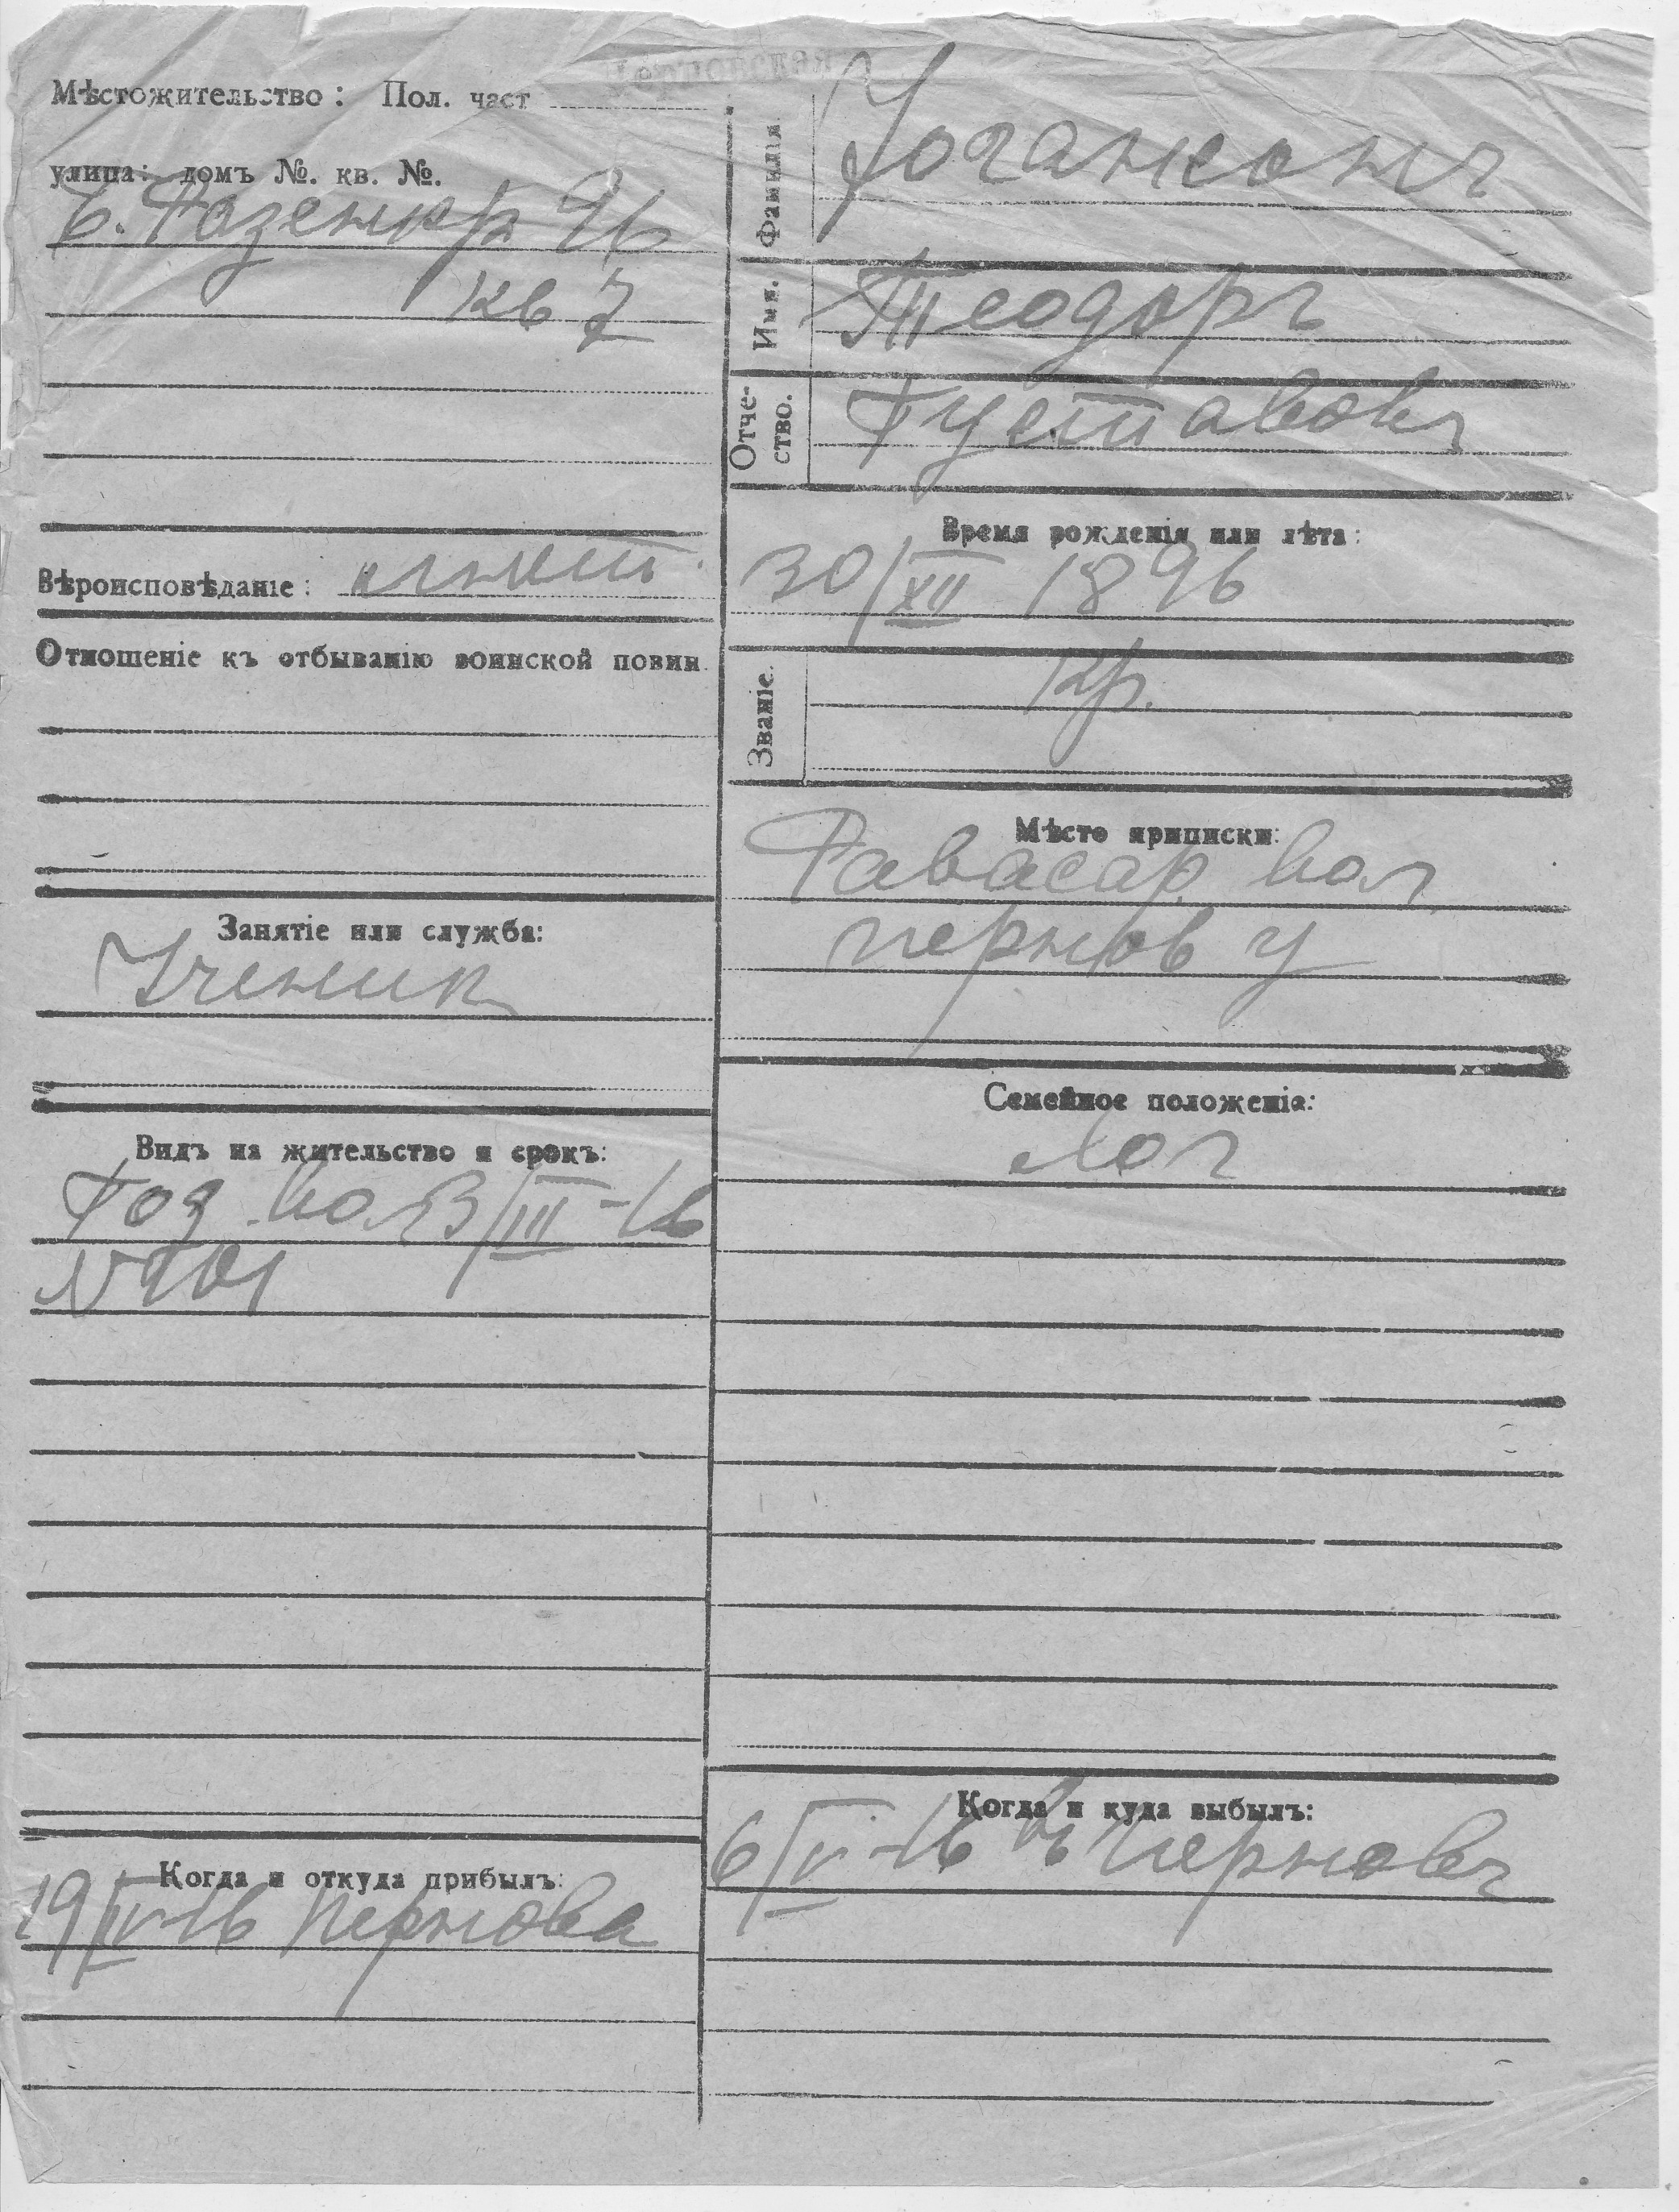 Мѣстожительство: Пол. част
улица: домъ №. кв. №.
96
кв 7
Вѣроисповѣданіе:
Отношеніе къ отбыванію воинской повин.
Занятіе или служба:
Ученик
Видъ на жительство и срокъ:
Год. вол 3/III-16
№
Когда и откуда прибылъ:
19/IV-16 Пернова
Фамилія.
Имя. Теодоръ
Отче-
ство. Густавовъ
Время рожденія или лѣта:
30/XII 1896
Званіе. Кр.
Мѣсто приписки:
вол
Пернов у
Семейное положеніе:
Хол
Когда и куда выбылъ:
6/V-16 въ Перновъ